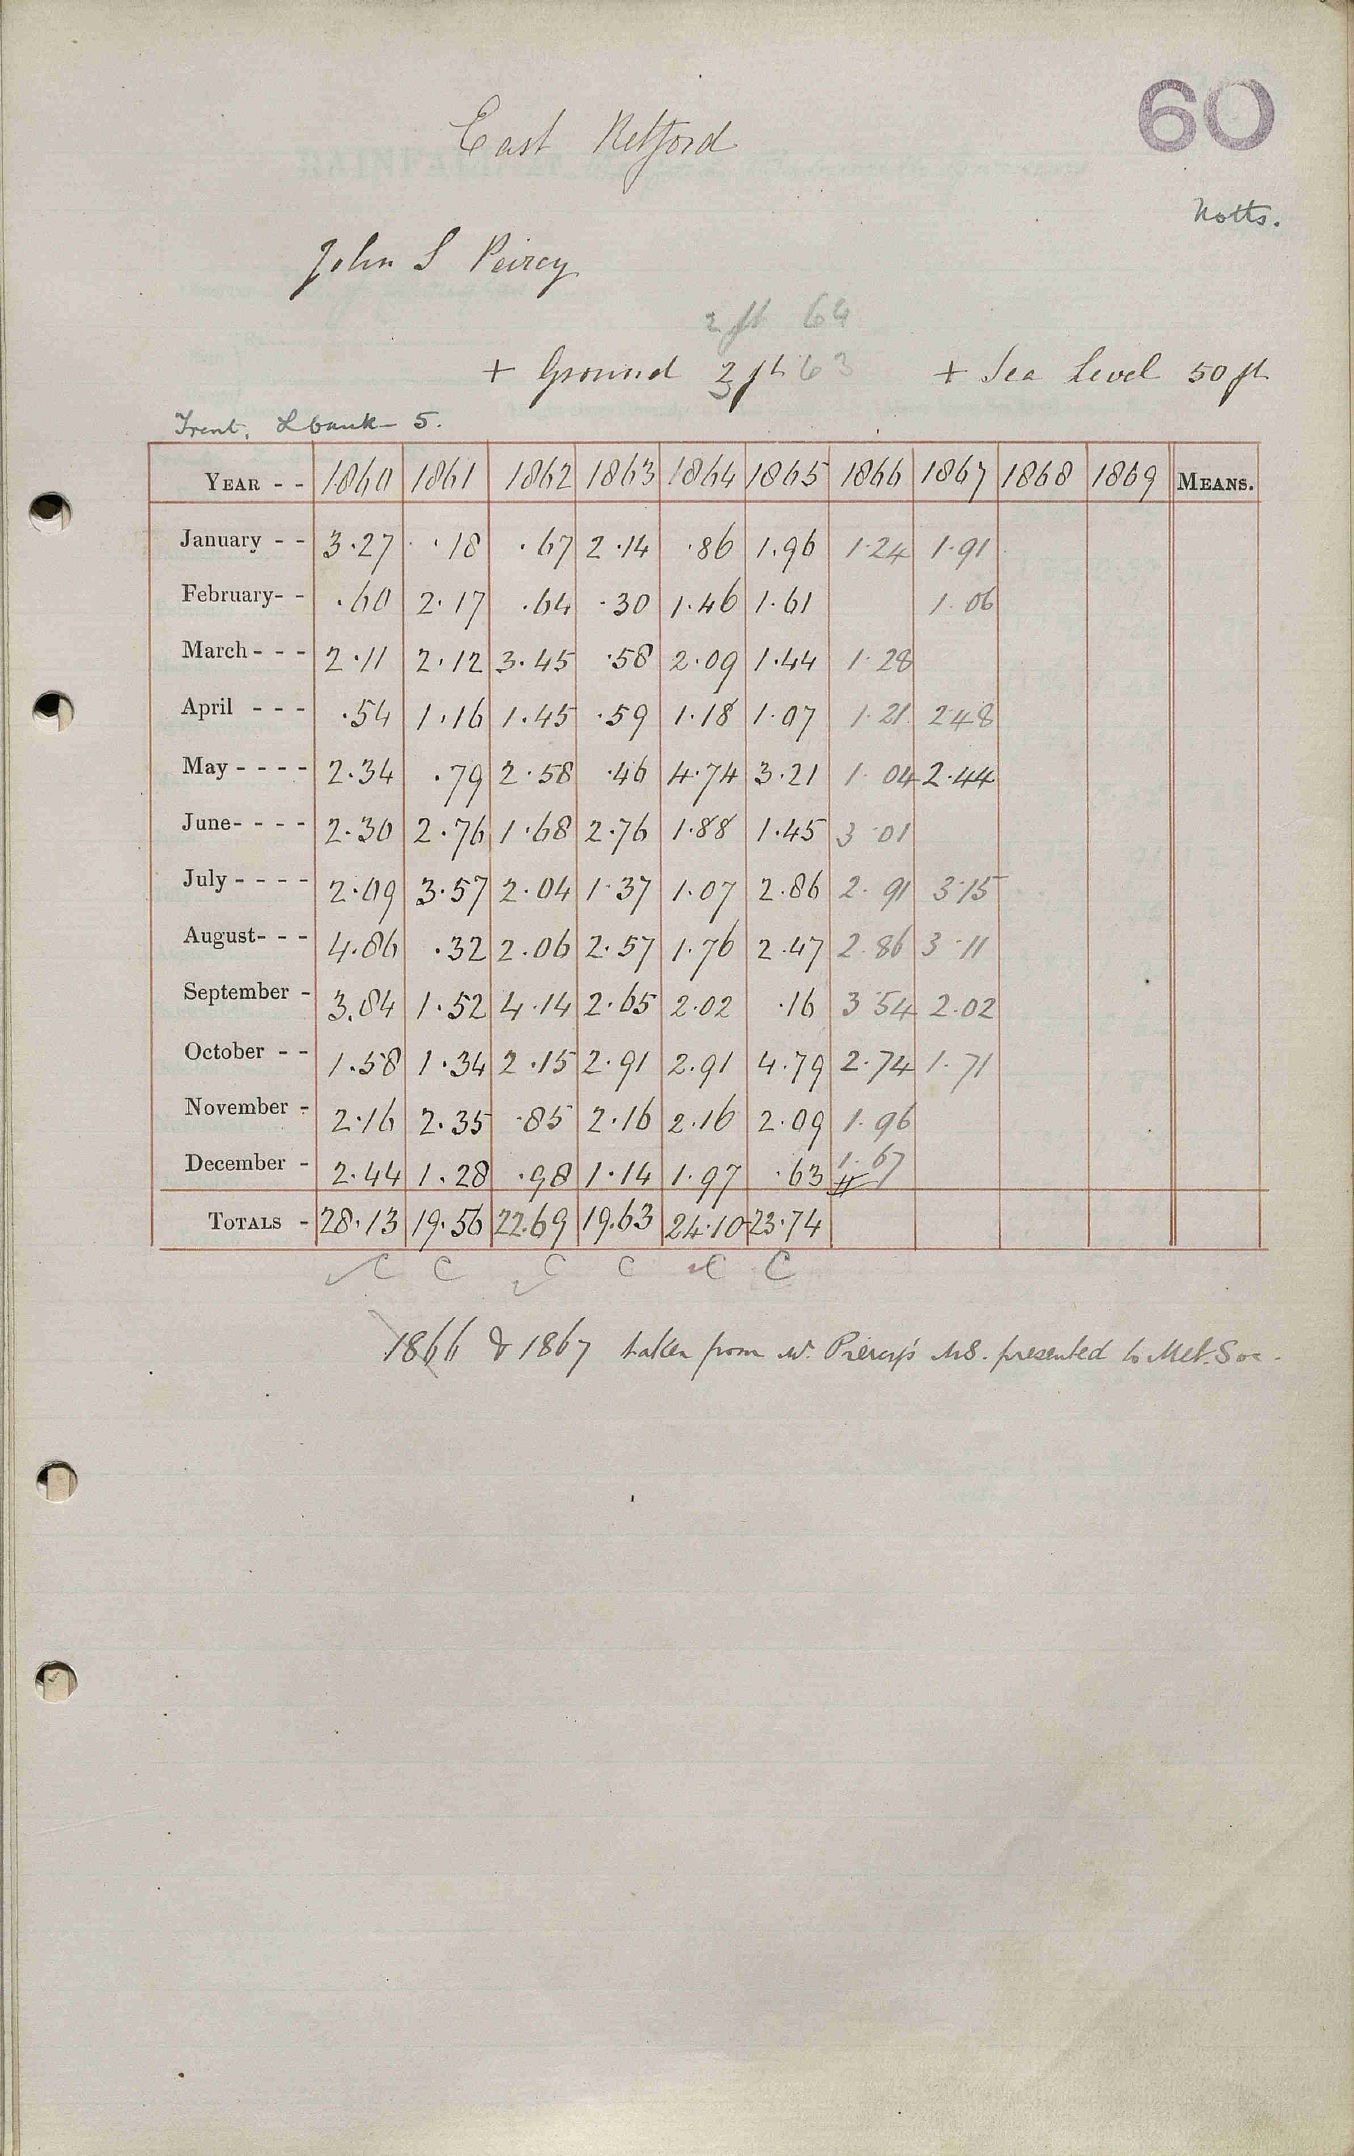 60
East Retford
Notts.
John S Peircy
2 ft 64
+ Ground 3 ft 63 + Sea Level 50 ft
Trent, L bank - 5.
YEAR - - 1860 1861 1862 1863 1864 1865 1866 1867 1868 1869 MEANS.
January - - 3.27 .18 .67 2.14 .86 1.96 1.24 1.91
February - - .60 2.17 .64 .30 1.46 1.61 1.06
March - - - 2.11 2.12 3.45 .58 2.09 1.44 1.28
April - - - .54 1.16 1.45 .59 1.18 1.07 1.21 2.48
May - - - - 2.34 .79 2.58 .46 4.74 3.21 1.04 2.44
June - - - - 2.30 2.76 1.68 2.76 1.88 1.45 3.01
July - - - - 2.09 3.57 2.04 1.37 1.07 2.86 2.91 3.15
August - - - 4.86 .32 2.06 2.57 1.76 2.47 2.86 3.11
September - 3.84 1.52 4.14 2.65 2.02 .16 3.54 2.02
October - - 1.58 1.34 2.15 2.91 2.91 4.79 2.74 1.71
November - 2.16 2.35 .85 2.16 2.16 2.09 1.96
December - 2.44 1.28 .98 1.14 1.97 .63 1.67
TOTALS - 28.13 19.56 22.69 19.63 24.10 23.74
C C C C C C
1866 & 1867 taken from Mr. Piercy's MS. presented to Met. Soc.